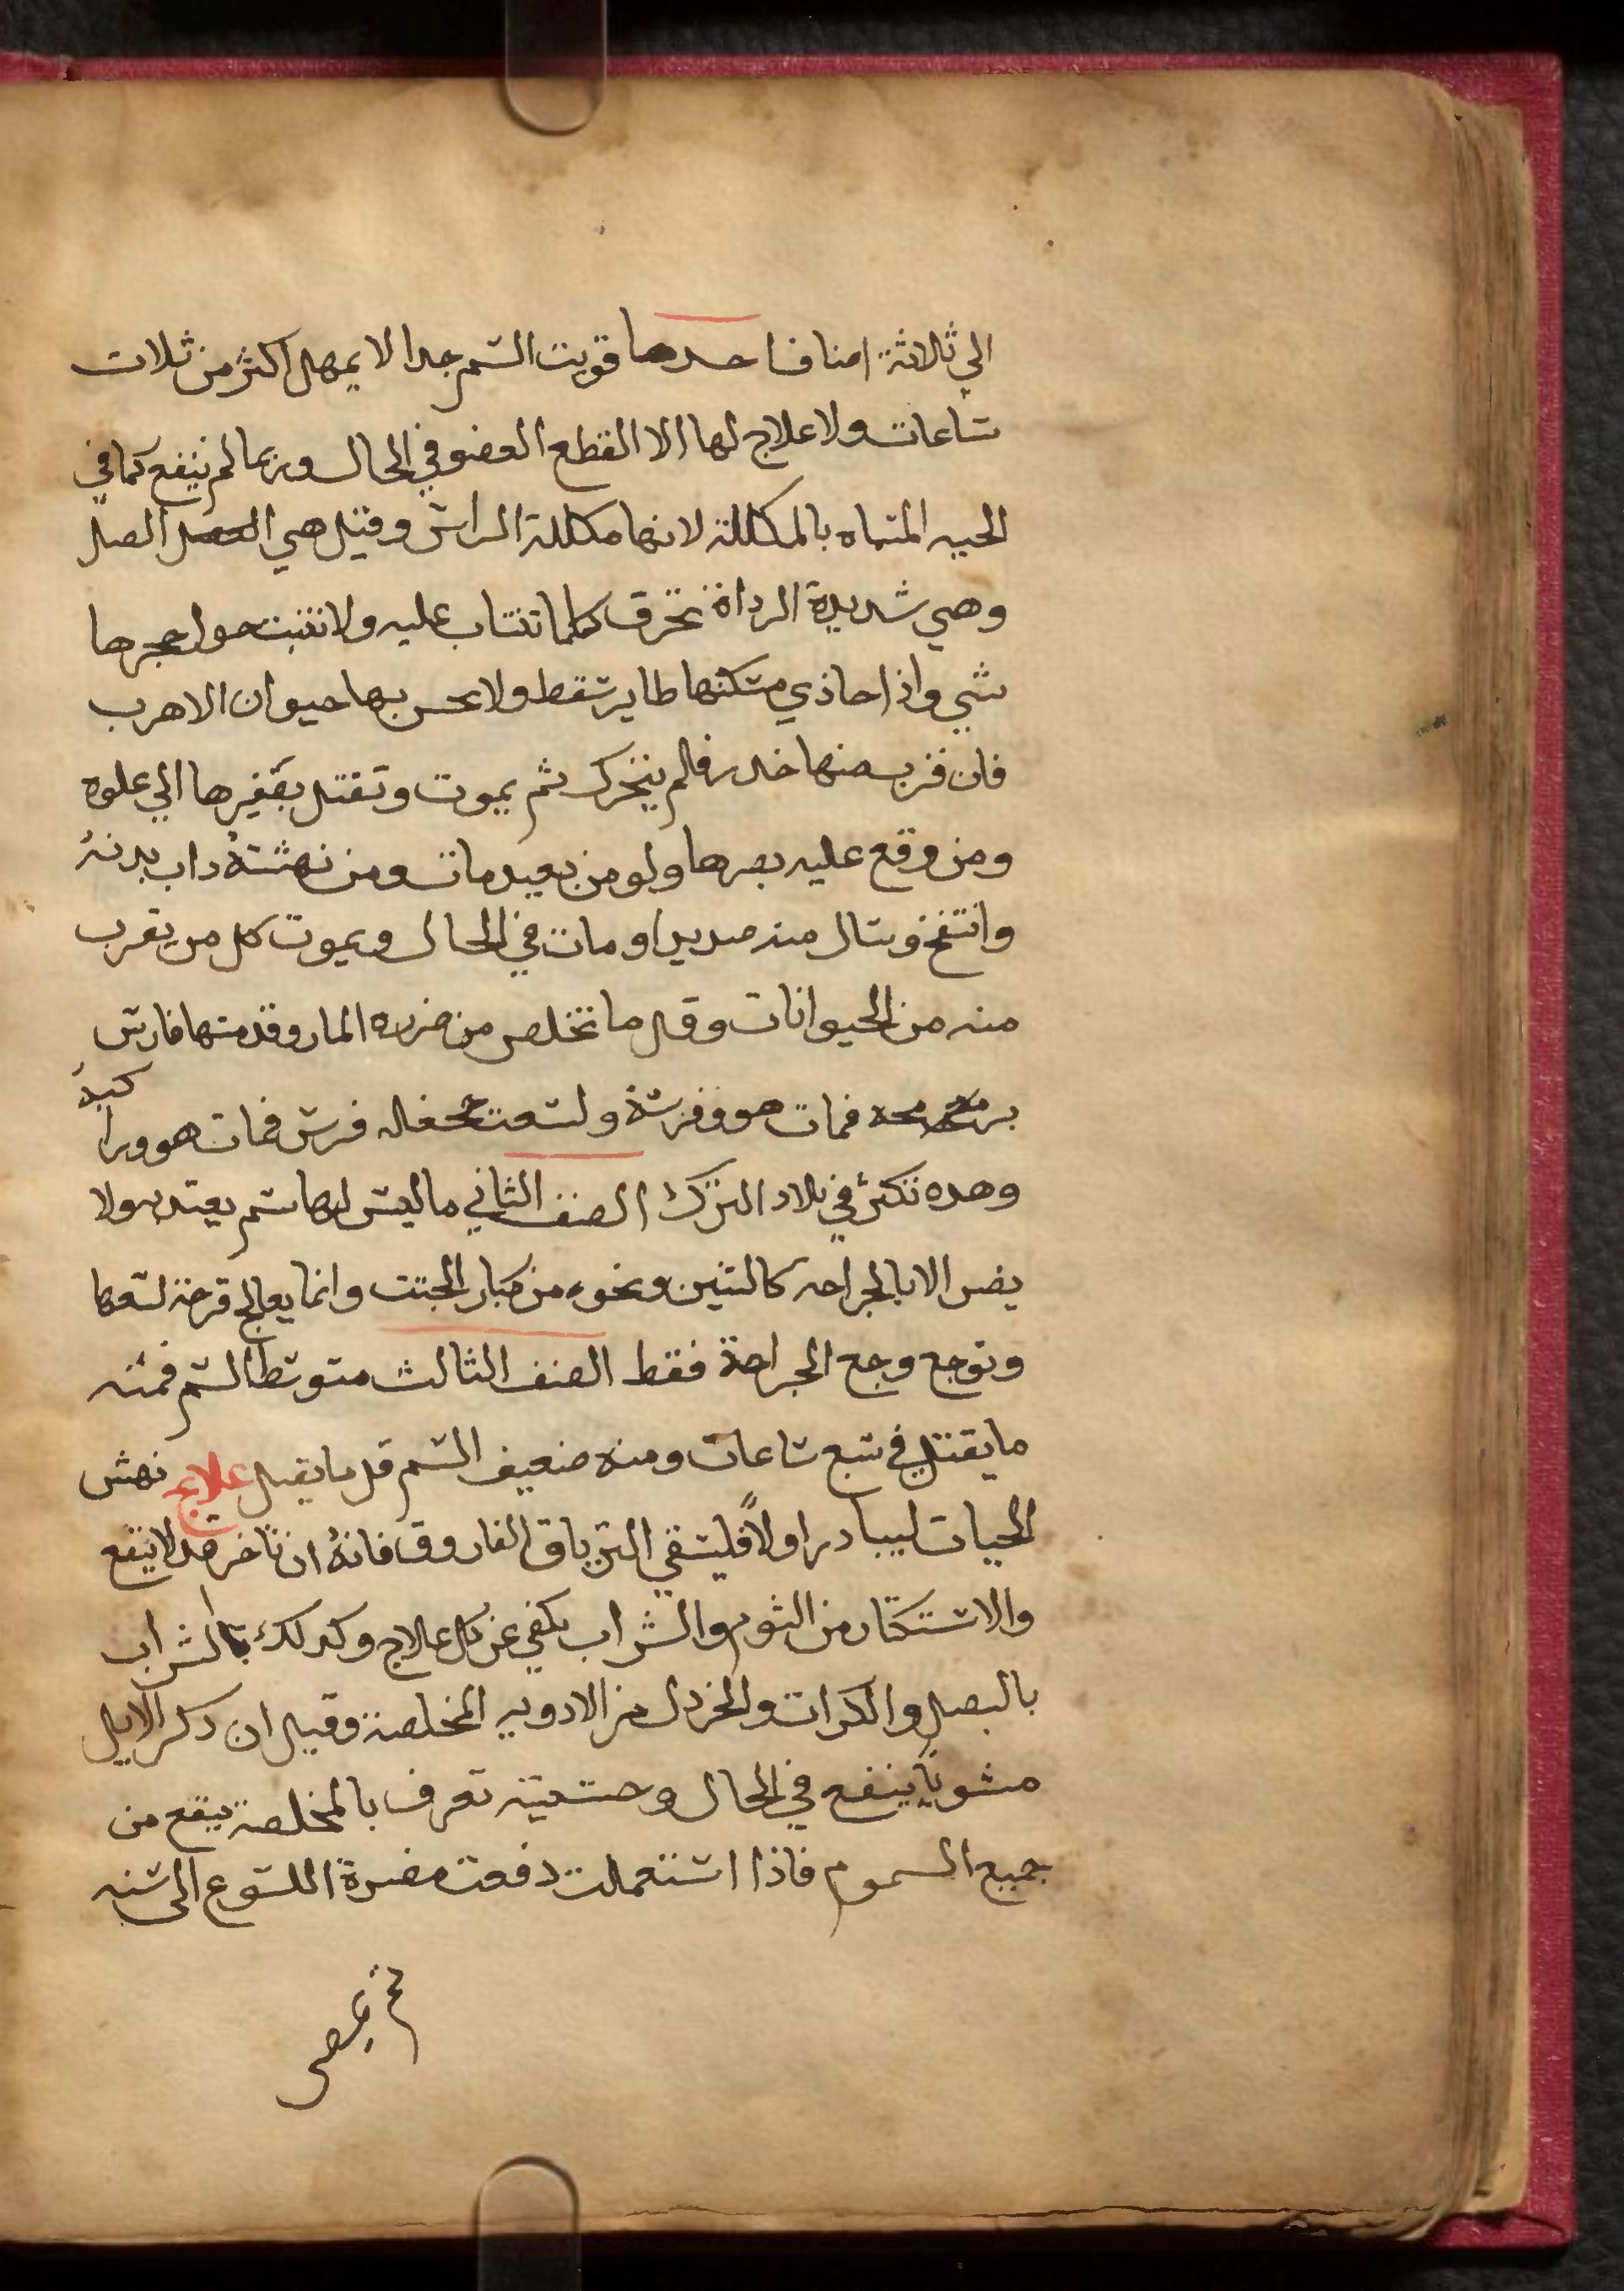 الي ثلاثة اصناف احدها قويت السم جدا لا يمهل اكثر من ثلاث
ساعات ولا علاج لها الا القطع العضو في الحال وربما لم ينفع كما في
الحيه المسماه بالمكللة لانها مكللة الراس وقيل هي الصل
وهي شديدة الرداة تحرق كلما تنساب عليه ولا تنبت حول حجرها
شي واذا حاذي مسكنها طاير سقط ولا يحس بها حيوان الا هرب
فان قرب منها خدر فلم يتحرك ثم يموت وتقتل بصفيرها الي علوه
ومن وقع عليه بصرها ولو من بعيد مات ومن نهشتة داب بدنة
وانتفخ وسال منه صديدا ومات في الحال ويموت كل من يقرب
منه من الحيوانات وقل ما تخلص من ضرره المار وقد مسها فارس
برمحه فمات هو وفرسة ولسعت جحفلة فرس فمات هو وراكبة
وهده تكثر في بلاد الترك الصنف الثاني ما ليس لها سم يعتد به ولا
يضر الا بالجراحه كالتنين ونحوه من كبار الجتت وانما يعالج قرحة لسعها
وتوجع وجع الجراحة فقط الصنف الثالث متوسط السم فمنه
ما يقتل في سبع ساعات ومنه ضعيف السم قل ما يقتل علاج نهش
الحيات ليبادر اولاً فليسقي الترياق الفاروق فانة ان تاخر قد لا ينفع
والاستكتار من الثوم والشراب يكفي عن كل علاج وكدلك الشراب
بالبصل والكرات والخردل من الادويه المخلصة وقيل ان دكر الايل
مشوياً ينفع في الحال وحشيشة تعرف بالمخلصة ينفع من
جميع السموم فاذا استعملت دفعت مضرة اللسوع الى سنه